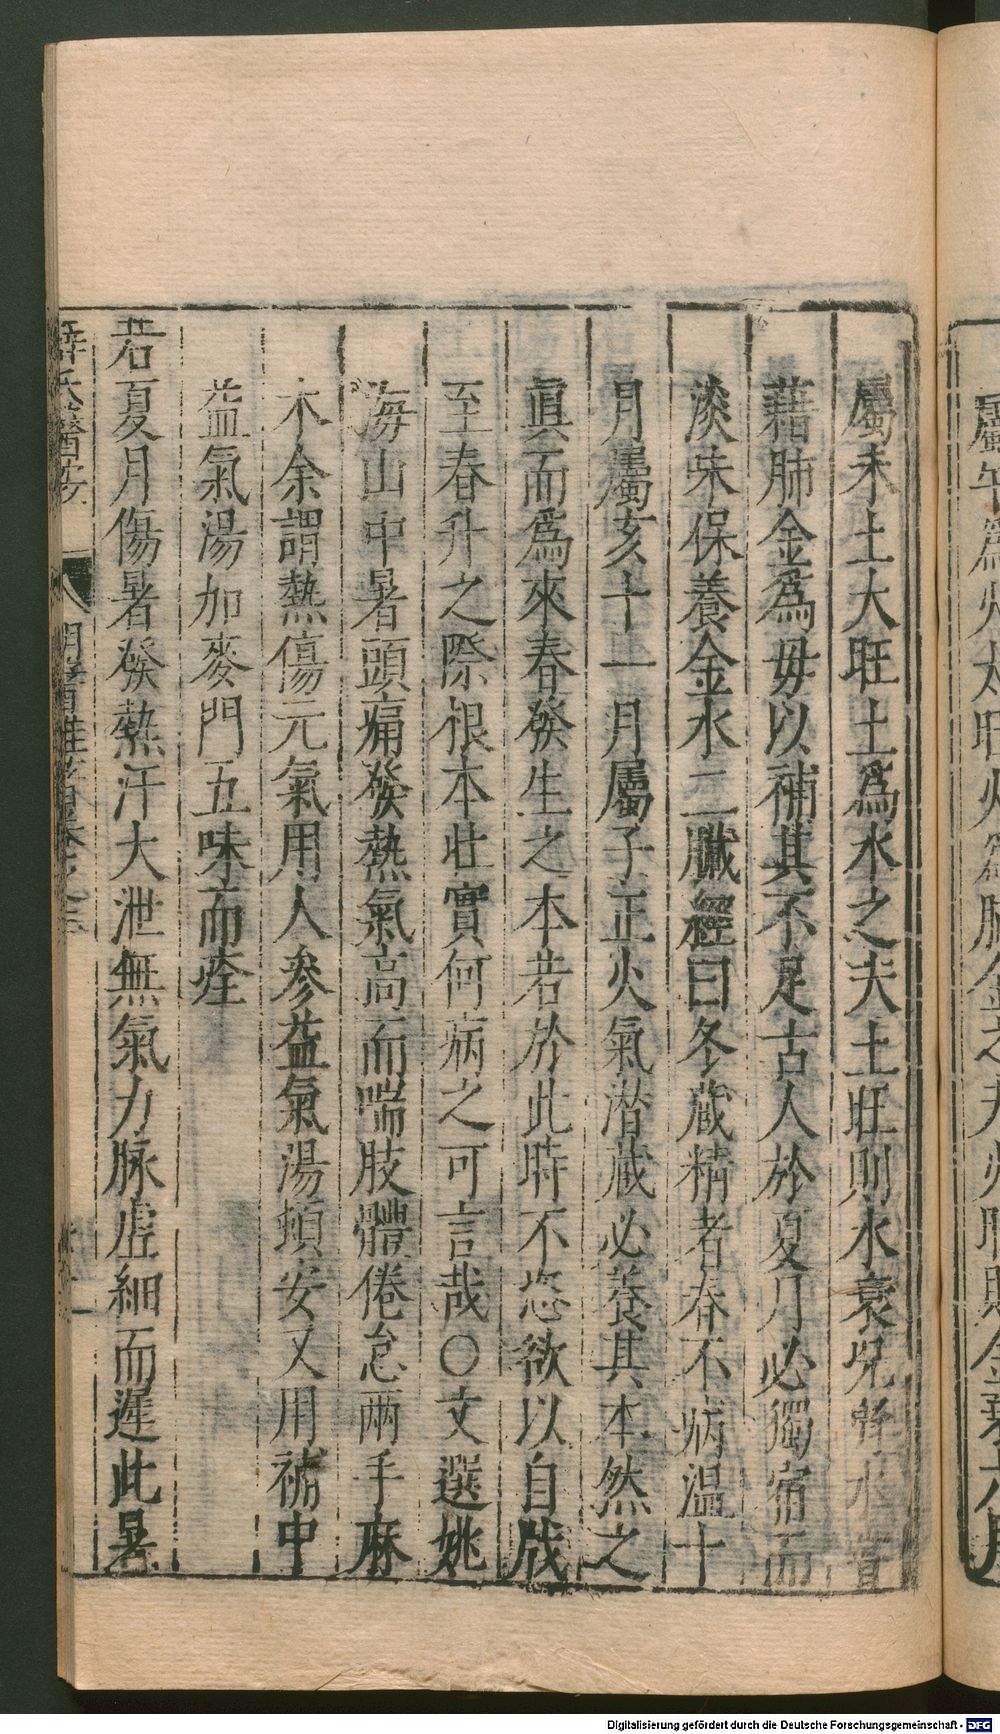 屬未土大旺土爲水之夫土旺則水衰况腎水嘗
藉肺金爲母以補其不足古人於夏月必獨宿而
淡味保養金水二臟經曰冬蔵精者春不病温十
月屬亥十一月屬子正火氣潜蔵必養其本然之
眞而爲來春發生之本若於此時不恣欲以自戕
至春升之際根本壯實何病之可言哉〇文選姚
海山中暑頭痛發熱氣高而喘肢體倦怠兩手麻
木余謂熱傷元氣用人參益氣湯頓安又用補中
益氣湯加麥門五味而痊
若夏月傷暑發熱汗大泄無氣力脉虛細而遲此暑
薛氏醫按 明醫雜著卷之三
Digitalisierung gefördert durch die Deutsche Forschungsgemeinschaft - DFG